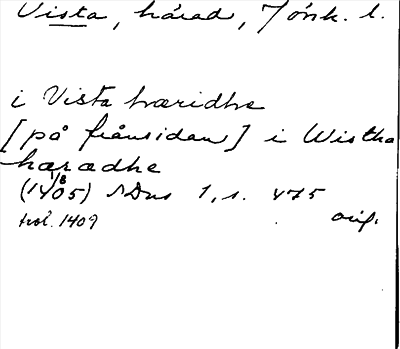 Vista, härad, Jönk. l.
i Vista hæridhe
[på frånsidan] i Wistha
hærædhe
(14 1/8 05) SDns 1, s. 475
trol. 1409 orig.